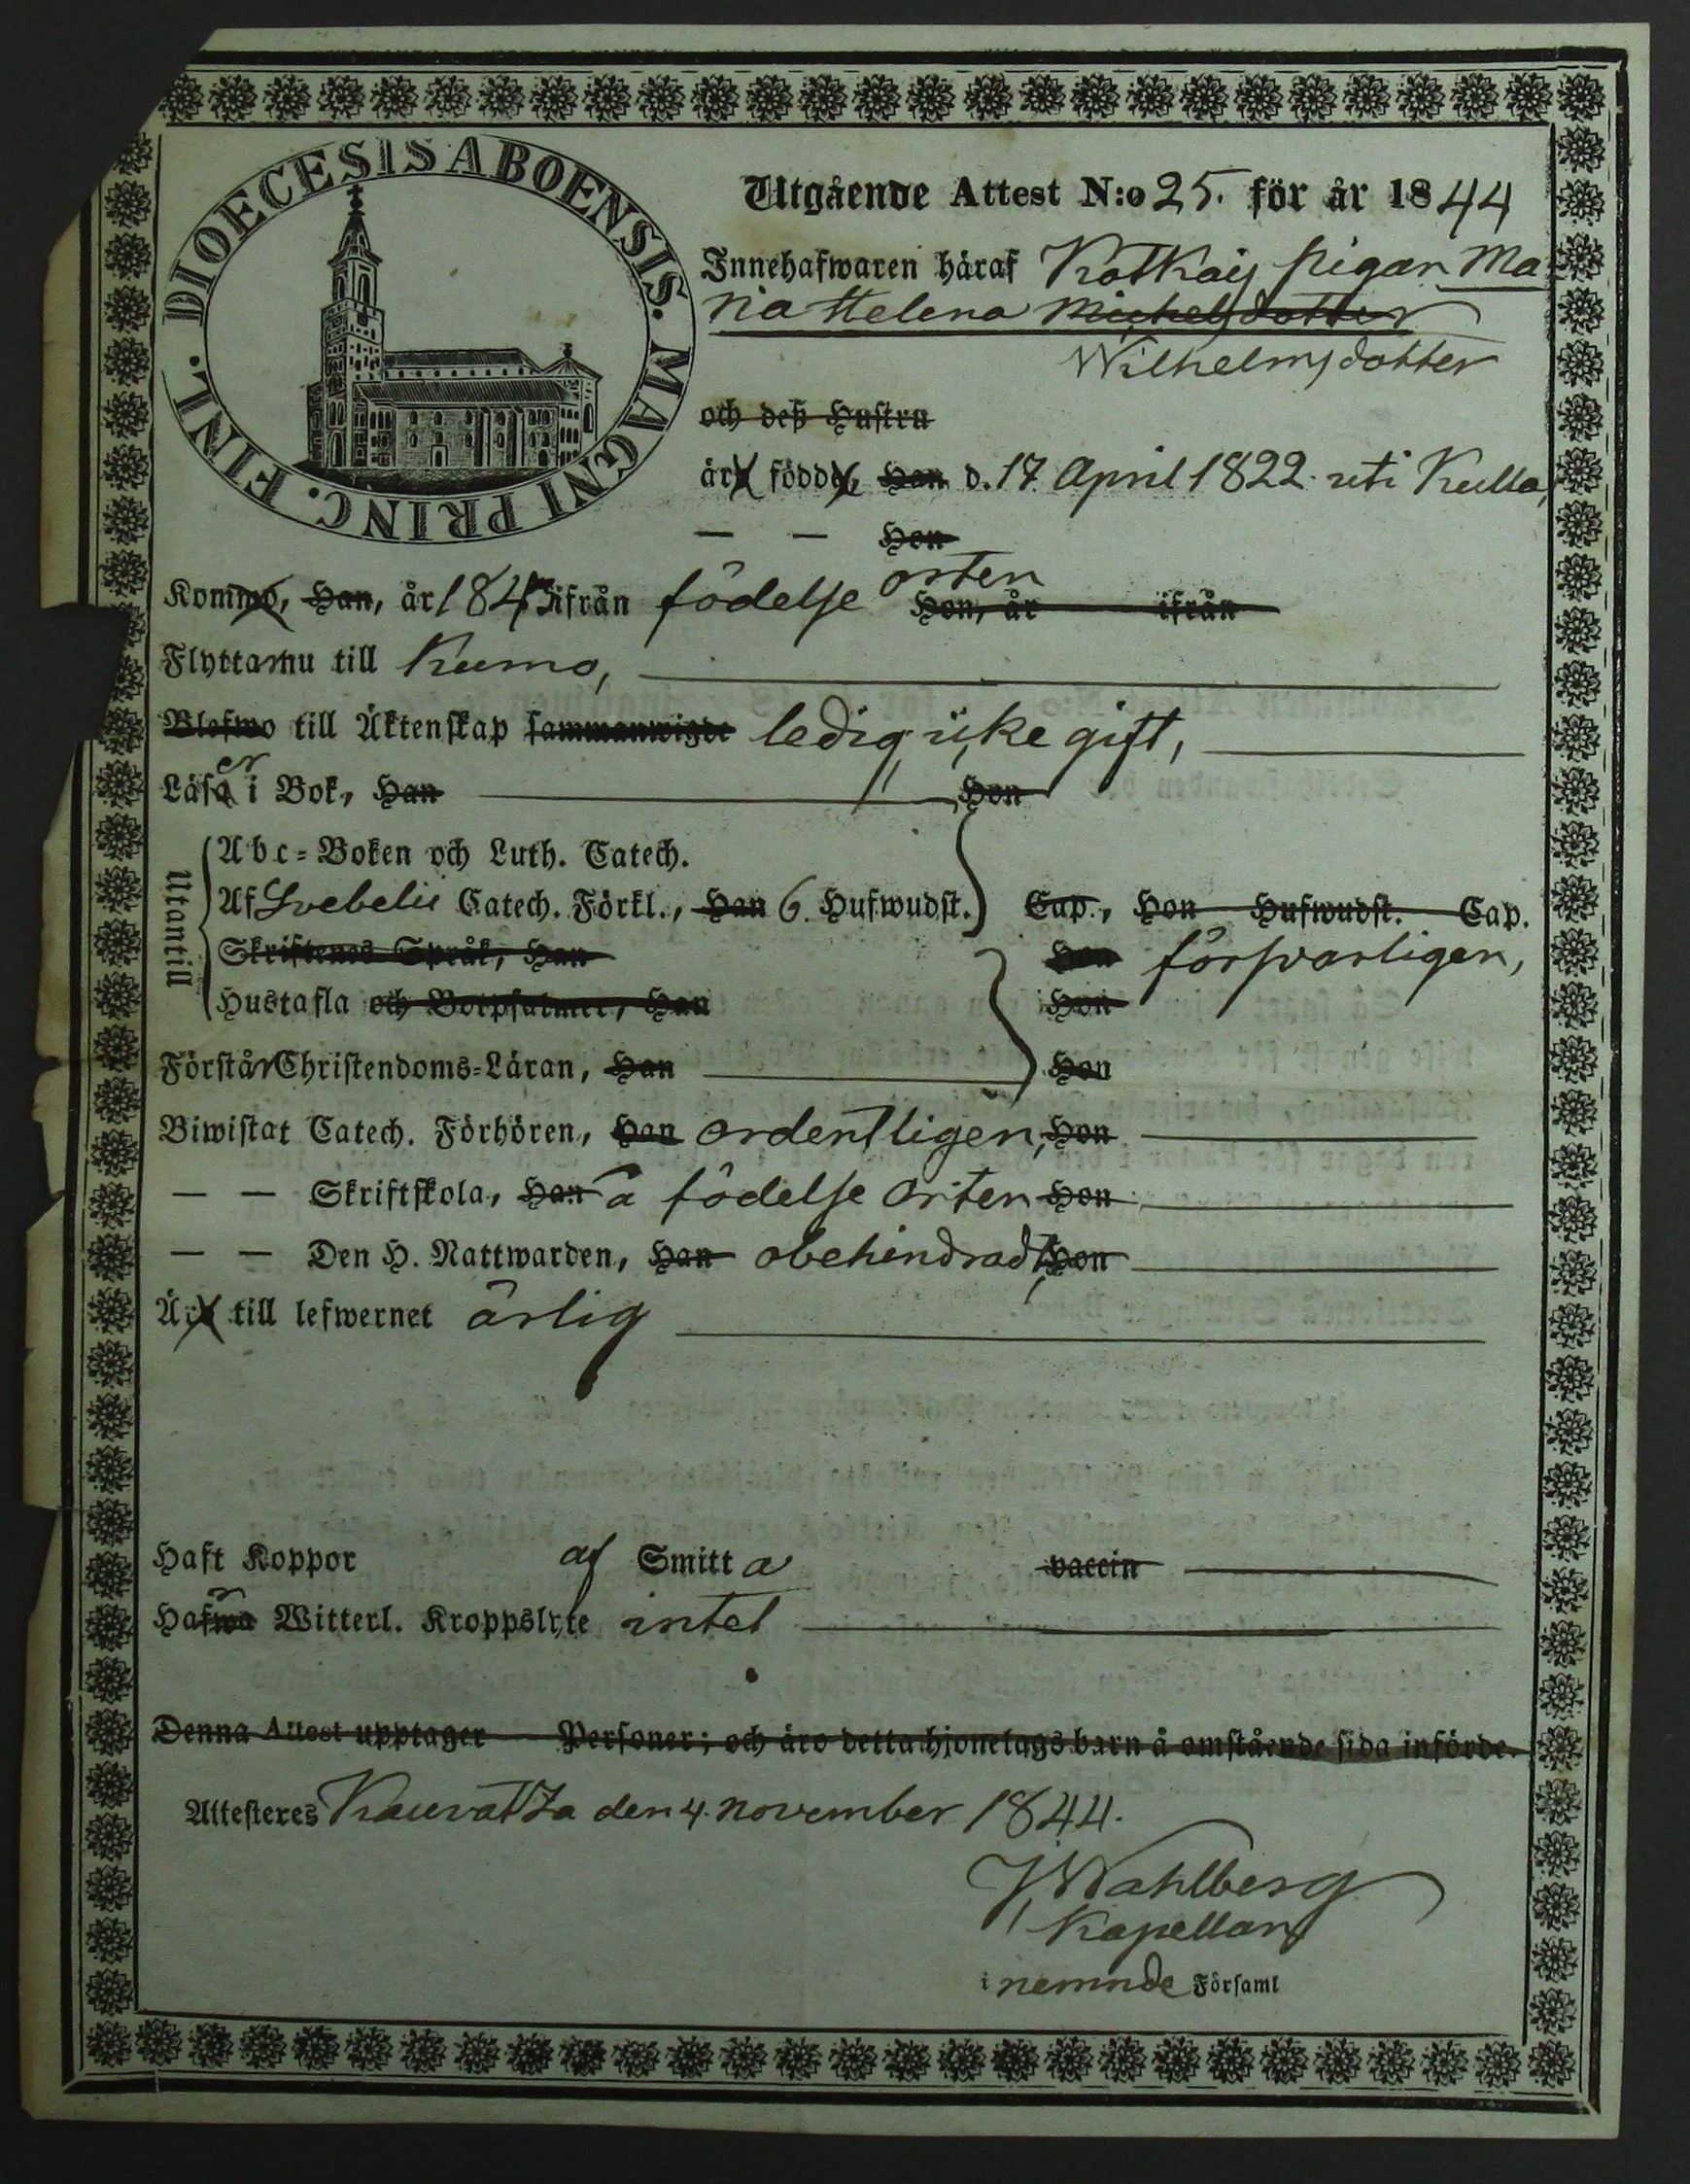 DIOECESIS ABOENSIS. MAGNI PRINC. FINL.
Utgående Attest N:o 25. för år 1844
Innehafwaren häraf Kotkais pigan Ma
ria Helena Michelsdotter
Wilhelmsdotter
och deß Hustru
äro födde, Han d. 17 April 1822. uti Kulla,
— — Hon
Kommo, Han, år 1843 ifrån födelse orten Hon, år ifrån
Flytta nu till Kumo,
Blefwo till Äktenskap sammanwigde ledig, icke gift,
Läser i Bok, Han Hon
Utantill
Abc-Boken och Luth. Catech.
Af Svebelii Catech. Förkl., Han 6. Hufwudst. Cap., Hon Hufwudst. Cap.
Skriftenes Språk, Han Hon försvarligen,
Hustafla och Botpsalmer, Han Hon
Förstår Christendoms-Läran, Han Hon
Biwistat Catech. Förhören, Han ordentligen, Hon
— — Skriftskola, Han å födelse orten Hon
— — Den H. Nattwarden, Han obehindradt, Hon
Äro till lefwernet ärlig
Haft Koppor af Smitta vaccin
Hafwa Witterl. Kroppslyte intet
Denna Attest upptager Personer; och äro detta hjonelags barn å omstående sida införde.
Attesteres Kauvatza den 4. november 1844.
J. Wahlberg
Kapellan
i nemnde Församl